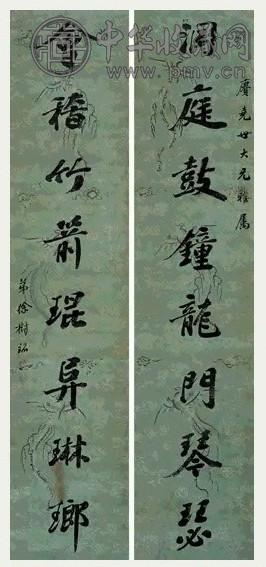 中华收藏网
www.pmv.cn
世大兄雅屬
洞庭鼓鐘龍門琴瑟
會稽竹箭琨异琳瑯
弟徐樹銘